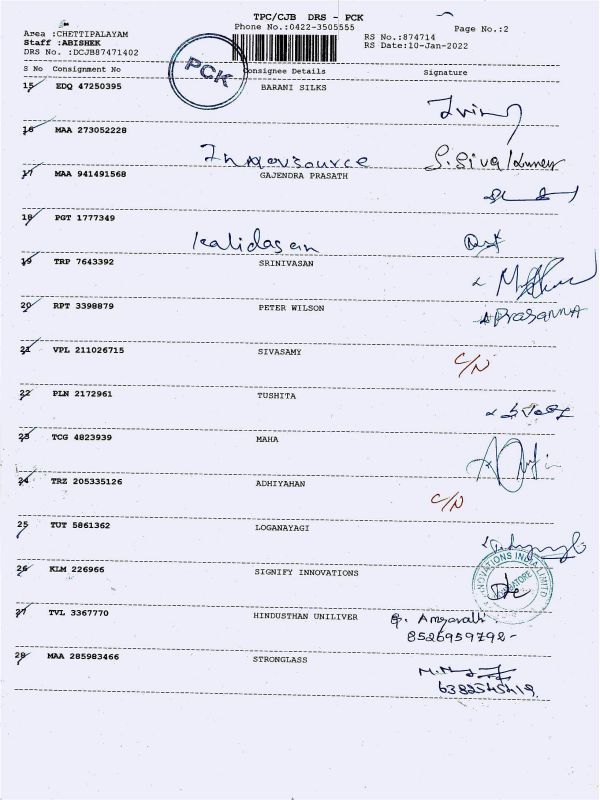 TPC/CJB DRS - PCK
Phone No.:0422-3505555
Page No.:2
Area :CHETTIPALAYAM
RS No.:874714
Staff :ABISHEK
RS Date:10-Jan-2022
DRS No. :DCJB87471402
PCK
S No Consignment No Consignee Details Signature
15 EDQ 47250395 BARANI SILKS
16 MAA 273052228
S.Siva
17 MAA 941491568 GAJENDRA PRASATH
18 PGT 1777349
kalidasan
19 TRP 7643392 SRINIVASAN
20 RPT 3398879 PETER WILSON
Prasanna
21 VPL 211026715 SIVASAMY
C/N
22 PLN 2172961 TUSHITA
23 TCG 4823939 MAHA
24 TRZ 205335126 ADHIYAHAN
C/N
25 TUT 5861362 LOGANAYAGI
26 KLM 226966 SIGNIFY INNOVATIONS
INNOVATIONS INDIA LIMITED
COIMBATORE
27 TVL 3367770 HINDUSTHAN UNILIVER
8526959792-
28 MAA 285983466 STRONGLASS
6382545419